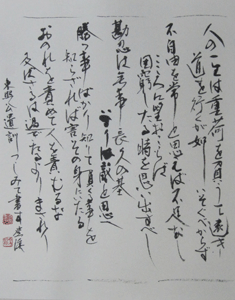 人の一生は重荷を負うて遠き
道を行くが如し いそぐべからず
不自由を常と思えば不足なし
こころに望おこらば
困窮したる時を思い出すべし
堪忍は無事長久の基
いかりは敵と思え
勝つ事ばかり知て負る事を
知らざれば害その身にいたる
おのれを責めて人を責むるな
及ばざるは過たるよりまされり
東照公遺訓 つつしみて書